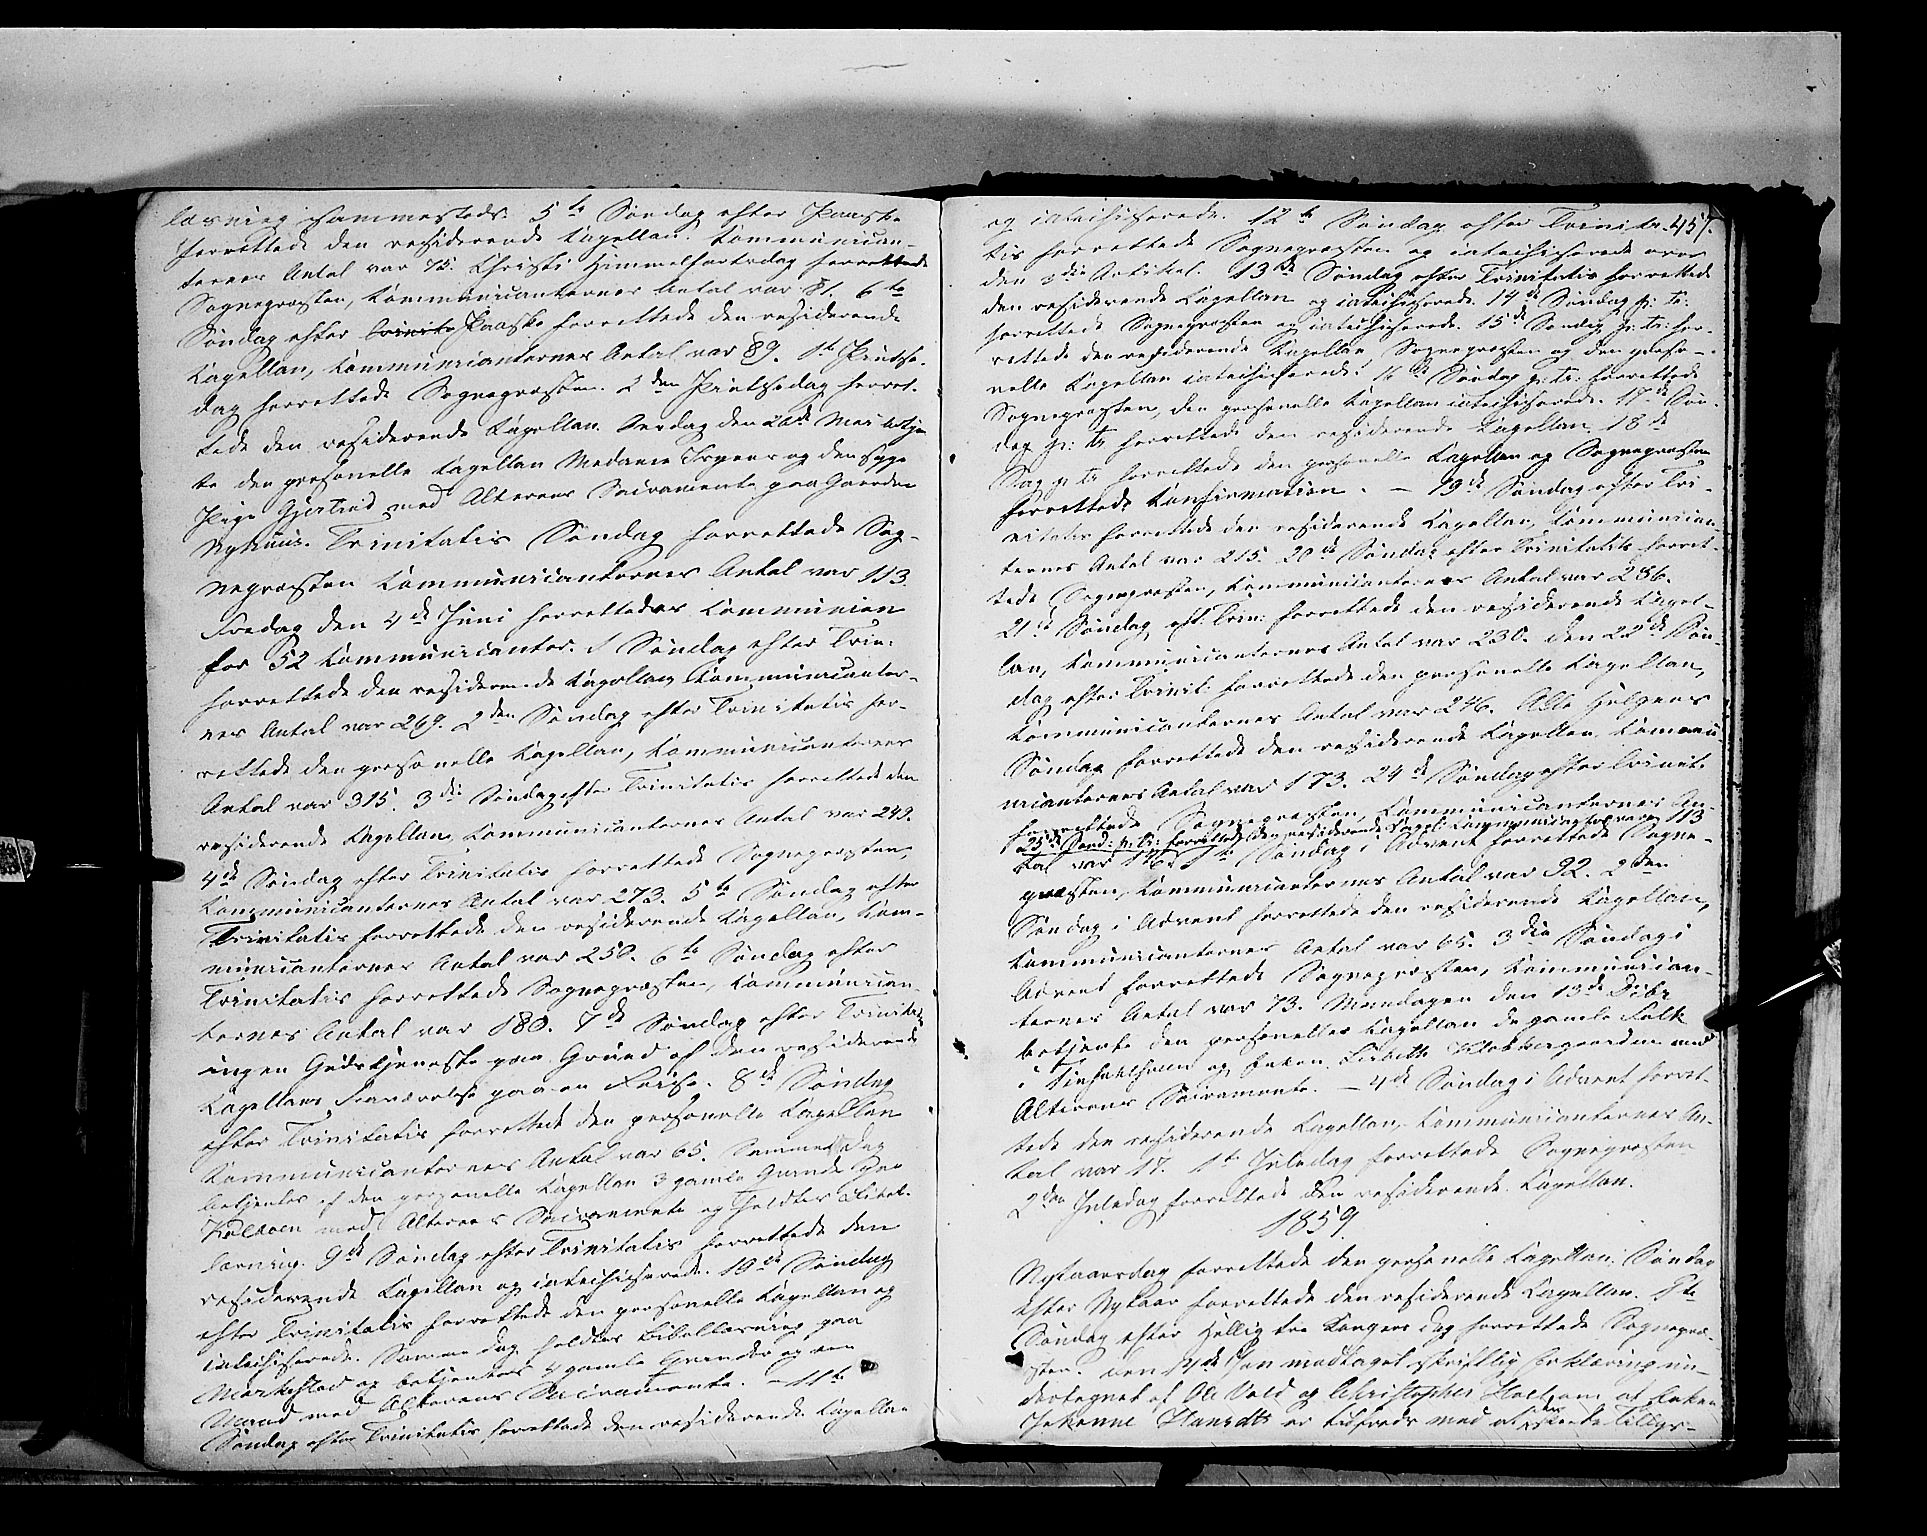 læsning sammesteds. 5te Søndag efter Paaske
forrettede den residerende Capellan. Communican-
ternes Antal var 75. Christi Himmelfartsdag forrettede
Sognepræsten, Communicanternes Antal var 81. 6te
Søndag efter Trinit. Paaske forrettede den residerende
Capellan, Communicanternes Antal var 89. 1ste Pintse-
dag forrettede Sognepræsten. 2den Pintsedag forret-
tede den residerende Capellan. Onsdag den 26de Mai betjen-
te den personelle Capellan Madame og den syge
Pige Gjertrud med Alterens Sacramente paa Gaarden
Nyhuus. Trinitatis Søndag forrettede Sog-
nepræsten Communicanternes Antal var 113.
Fredag den 4de Juni forrettedes Communion
for 52 Communicanter. 1 Søndag efter Trin.
forrettede den residerende Capellan Communicanter-
nes Antal var 269. 2den Søndag efter Trinitatis for-
rettede den personelle Capellan, Communicanternes
Antal var 315. 3die Søndag efter Trinitatis forrettede den
residerende Capellan, Communicanternes Antal var 249.
4de Søndag efter Trinitatis forrettede Sognepræsten,
Communicanternes Antal var 273. 5te Søndag efter
Trinitatis forrettede den residerende Capellan, Com-
municanternes Antal var 250. 6te Søndag efter
Trinitatis forrettede Sognepræsten, Communican-
ternes Antal var 180. 7de Søndag efter Trinitatis
ingen Gudstjeneste paa Grund af den residerende
Capellans Fraværelse paa en Reise. 8de Søndag
efter Trinitatis forrettede den personelle Capellan
Communicanternes Antal var 65. Samme Dag
betjentes af den personelle Capellan 3 gamle paa
med Alterens Sacramente og holdtes Bibel-
læsning. 9de Søndag efter Trinitatis forrettede den
residerende Capellan og catechiserede. 10de Søndag
efter Trinitatis forrettede den personelle Capellan og
catechiserede. Samme Dag holdtes Bibellæsning paa
og betjentes 4 gamle og en
Mand med Alterens Sacramente. – 11te
Søndag efter Trinitatis forrettede den residerende Capellan
457.
og catechiserede. 12te Søndag efter Trinita-
tis forrettede Sognepræsten og catechiserede over
den 3die Artikel. 13de Søndag efter Trinitatis forrettede
den residerende Capellan og catechiserede. 14de Søndag p: tr:
forrettede Sognepræsten og catechiserede. 15de Søndag p: tr: for-
rettede den residerende Capellan, Sognepræsten og den perso-
nelle Capellan catechiserede. 16de Søndag p: tr: forrettede
Sognepræsten, den personelle Capellan catechiserede. 17de Søn-
dag p: tr: forrettede den residerende Capellan. 18de
p: tr: forrettede den personelle Capellan og Sognepræsten
forrettede Confirmation. – 19de Søndag efter Tri-
nitatis forrettede den residerende Capellan, Communican-
ternes Antal var 215. 20de Søndag efter Trinitatis forret-
tede Sognepræsten, Communicanternes Antal var 286.
21de Søndag eft. Trin: forrettede den residerende Capel-
lan, Communicanternes Antal var 230. Den 22de Søn-
dag efter Trinit: forrettede den personelle Capellan,
Communicanternes Antal var 246. Alle Helgens
Søndag forrettede den residerende Capellan Commu-
nicanternes Antal var 173. 24de Søndag efter Trinit.
forrettede Sognepræsten, Communicanternes An-
25de Sønd: p: Tr: forrettede den residerende Capel: 113
tal var 1ste Søndag i Advent forrettede Sogne-
præsten, Communicanternes Antal var 92. 2den
Søndag i Advent forrettede den residerende Capellan,
Communicanternes Antal var 65. 3die Søndag i
Advent forrettede Sognepræsten, Communican-
ternes Antal var 73. Mandagen den 13de Decbr
betjente den personelle Capellan de gamle Folk
i og Enken Lisbeth Klokkergaarden med
Alterens Sacramente. – 4de Søndag i Advent forret-
tede den residerende Capellan, Communicanternes An-
tal var 17. 1ste Juledag forrettede Sognepræsten
2den Juledag forrettede den residerende Capellan.
1859.
Nytaarsdag forrettede den personelle Capellan. Søndag
efter Nytaar forrettede den residerende Capellan. 1ste
Søndag efter Hellig tre Kongers Dag forrettede Sognepræ-
sten. Den Jan modtaget skriftlig Erklæring un-
dertegnet af Ole Vold og Christopher at Enken
Johanne Hansdtr er tilfreds med at